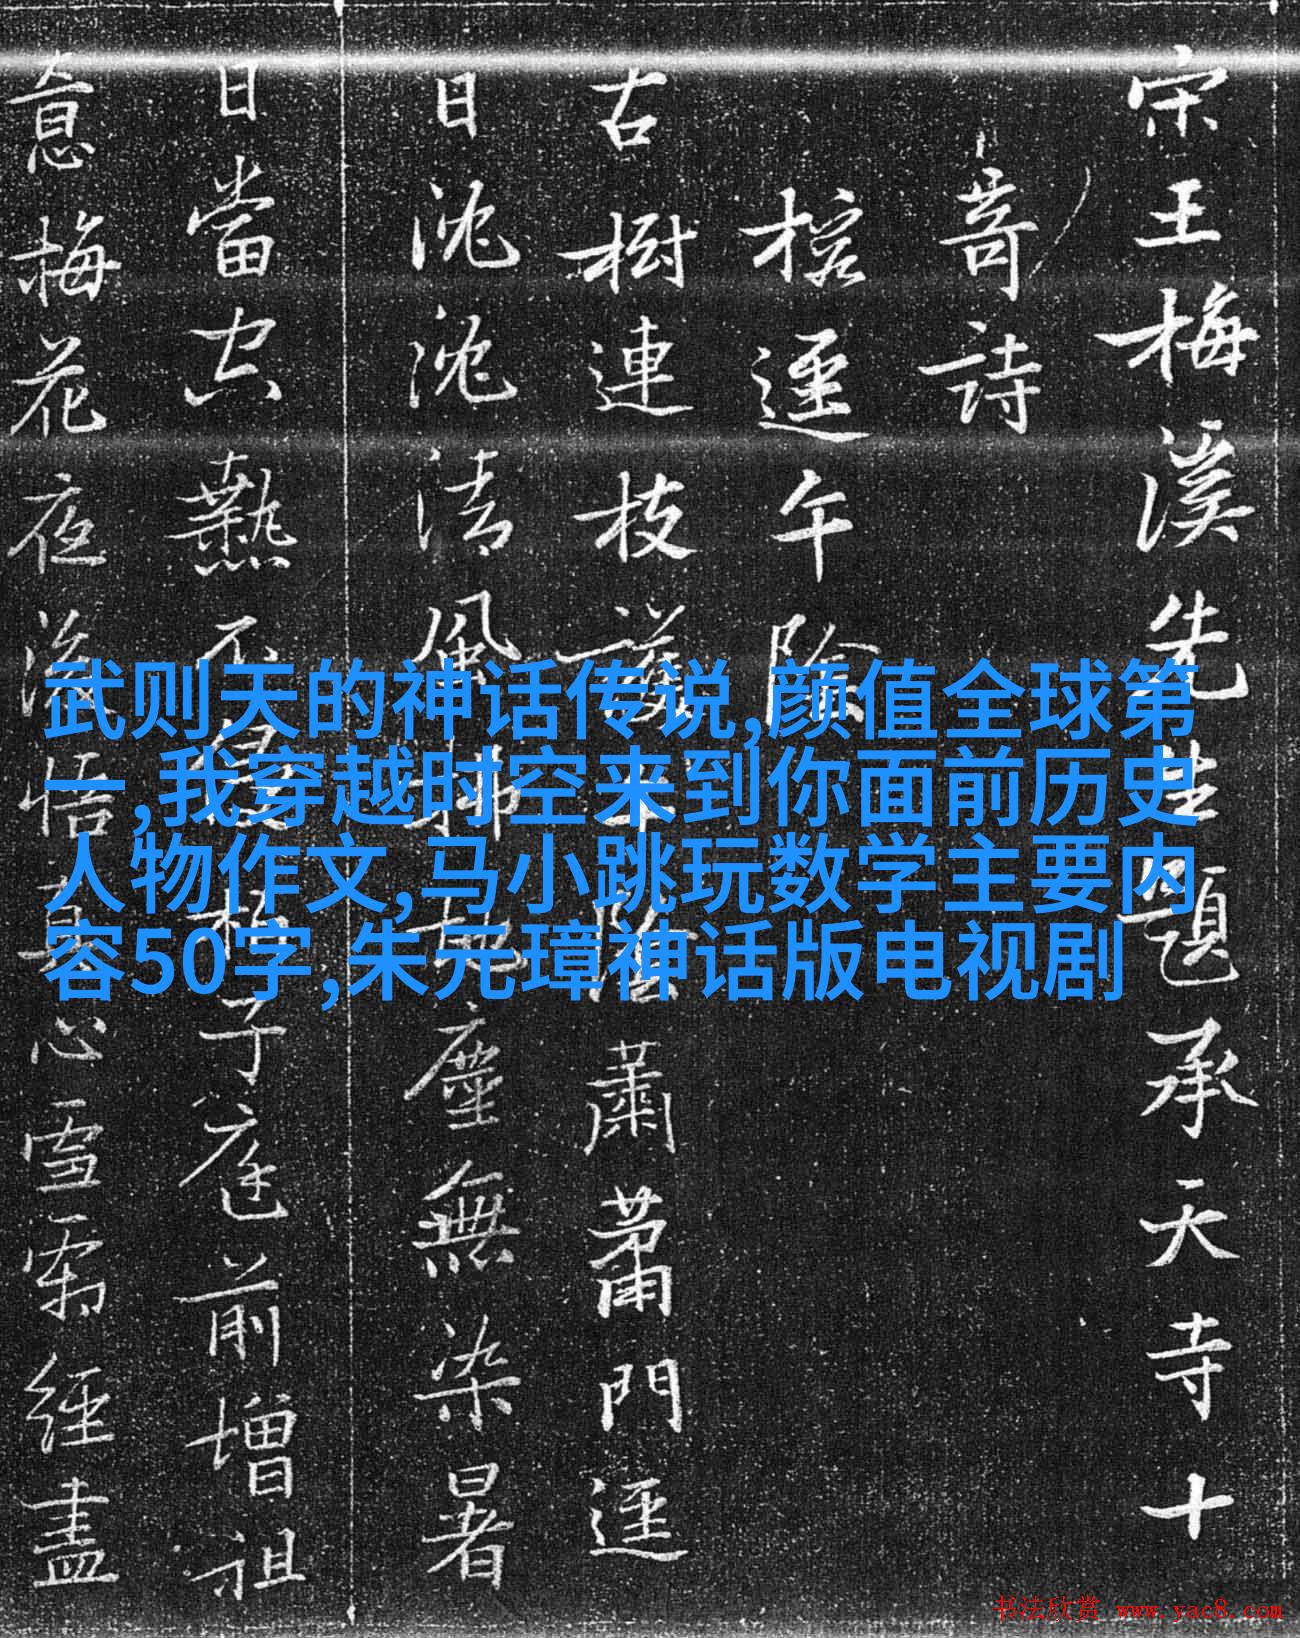 宋王梅溪先生題承天寺十
竒詩
榕逕午陰
古樹連枝午陰蕭蕭門逕
日沈沈清風拂地塵無染暑
日當空熱不侵子庭前增祖
意梅花夜悟真心雪霜經盡
武则天的神话传说,颜值全球第
一,我穿越时空来到你面前历史
人物作文,马小跳玩数学主要内
容50字,朱元璋神话版电视剧
书法欣赏 www.yac8.com